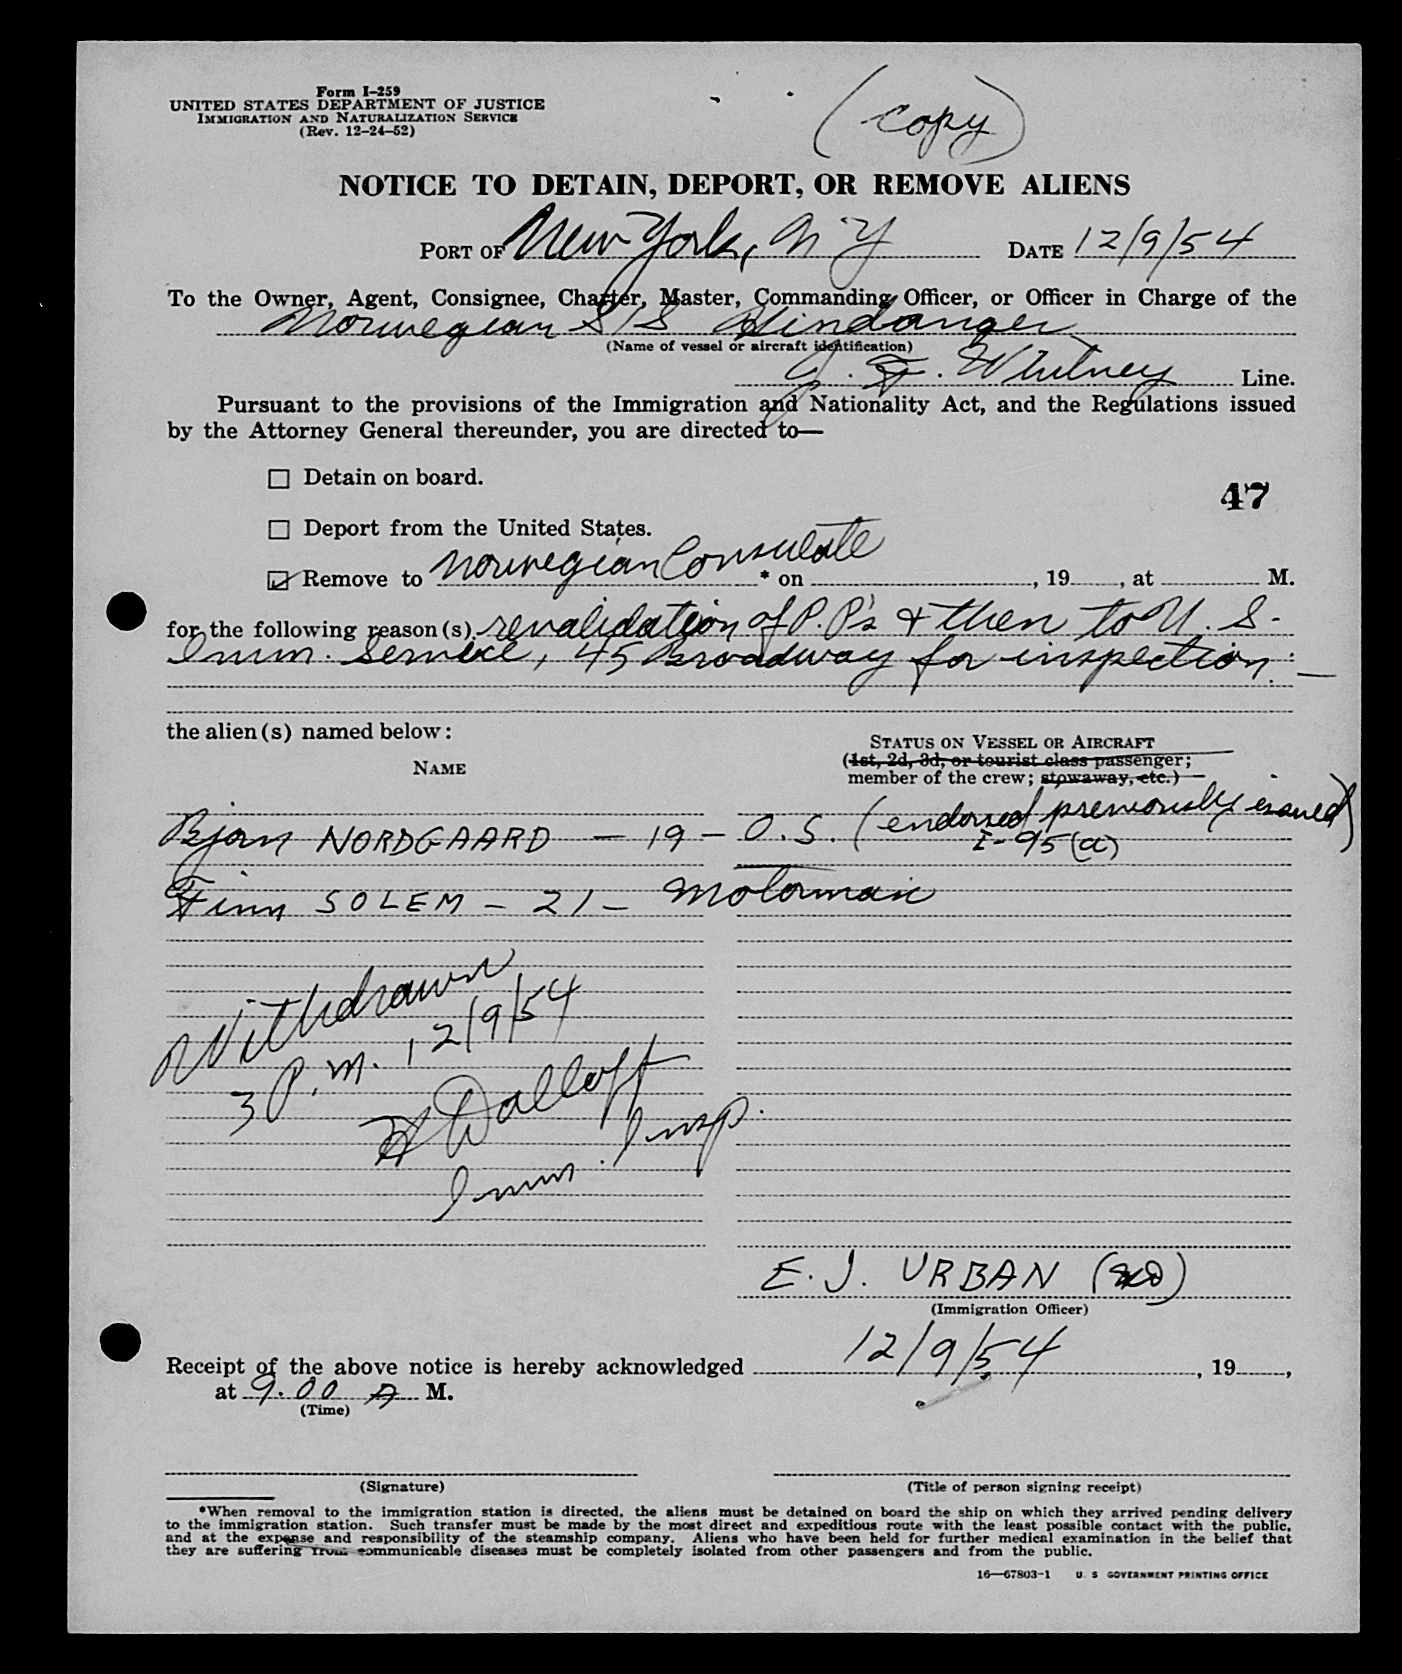 Form I-259
UNITED STATES DEPARTMENT OF JUSTICE
IMMIGRATION AND NATURALIZATION SERVICE
(Rev. 12-24-52)
(copy)
NOTICE TO DETAIN, DEPORT, OR REMOVE ALIENS
PORT OF New York, N Y DATE 12/9/54
To the Owner, Agent, Consignee, Charter, Master, Commanding Officer, or Officer in Charge of the
Norwegian S/S Hindanger
(Name of vessel or aircraft identification)
J. F. Whitney Line.
Pursuant to the provisions of the Immigration and Nationality Act, and the Regulations issued
by the Attorney General thereunder, you are directed to—
☐ Detain on board.
47
☐ Deport from the United States.
☑ Remove to Norwegian Consulate * on , 19 , at M.
for the following reason(s) revalidation of P.P's & then to U. S.
Imm. Service, 45 Broadway for inspection. —
the alien(s) named below:
STATUS ON VESSEL OR AIRCRAFT
NAME
(1st, 2d, 3d, or tourist class passenger;
member of the crew; stowaway, etc.)
Bjorn NORDGAARD — 19 — O.S. (endorsed previously issued)
I-95(a)
Finn SOLEM — 21 — Motorman
Withdrawn
3 P.m. 12/9/54
Imm. Insp.
E. J. URBAN
(Immigration Officer)
Receipt of the above notice is hereby acknowledged 12/9/54 , 19 ,
at 9.00 A M.
(Time)
(Signature) (Title of person signing receipt)
*When removal to the immigration station is directed, the aliens must be detained on board the ship on which they arrived pending delivery
to the immigration station. Such transfer must be made by the most direct and expeditious route with the least possible contact with the public,
and at the expense and responsibility of the steamship company. Aliens who have been held for further medical examination in the belief that
they are suffering from communicable diseases must be completely isolated from other passengers and from the public.
16—67803-1 U. S. GOVERNMENT PRINTING OFFICE